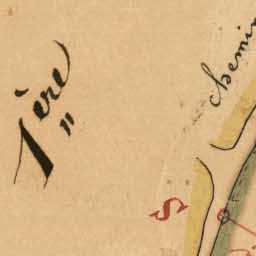 1ère
chemin
S